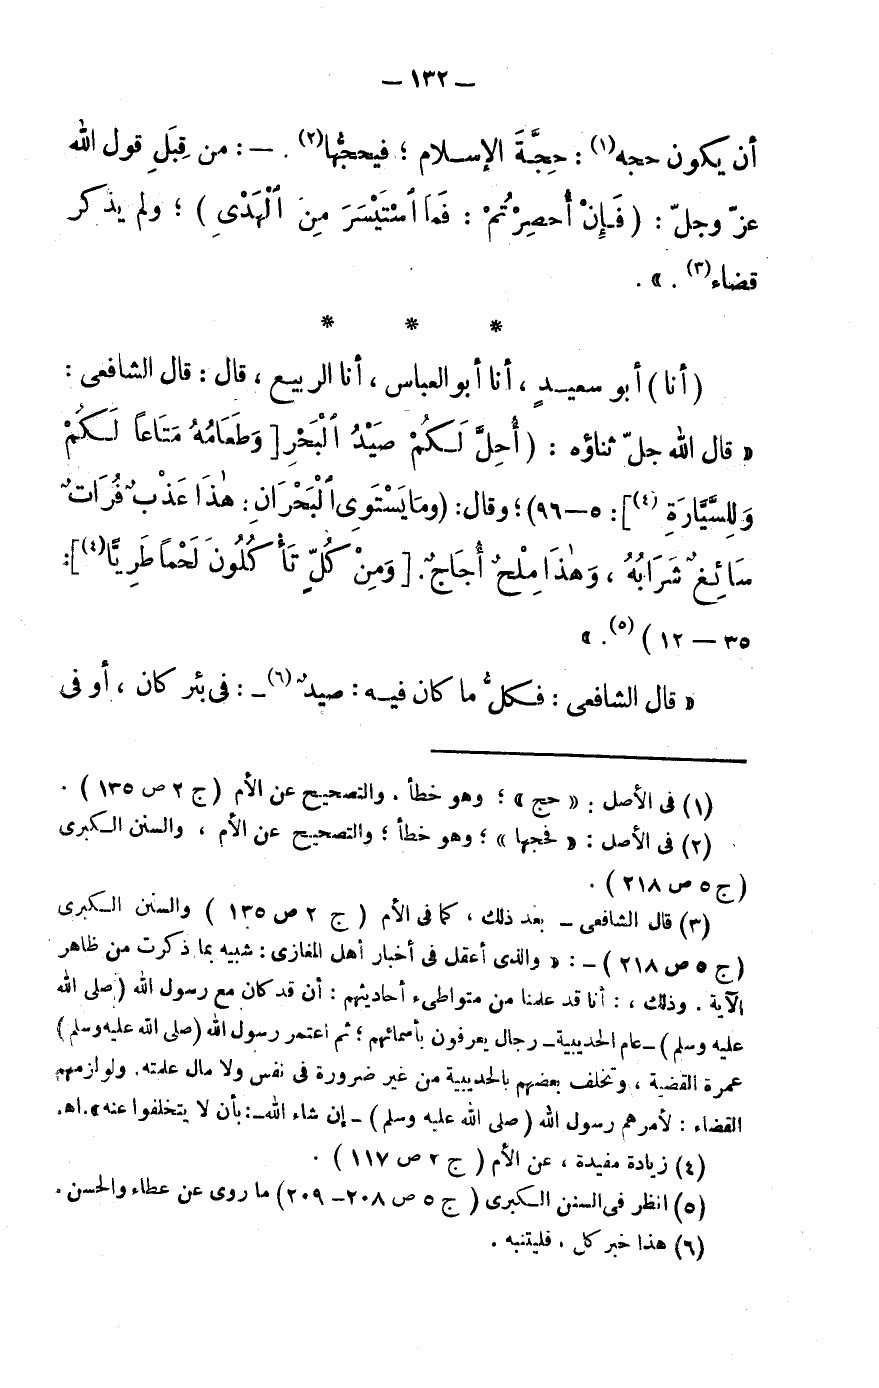 — ١٣٢ —
أن يكون حجه(١) : حِجَّةَ الإسلام ؛ فيحجُّها(٢) . — : من قِبَلِ قول الله
عزّ وجلّ : ( فَإِنْ أُحصِرْتُمْ : فَمَا ٱسْتَيْسَرَ مِنَ ٱلْهَدْىِ ) ؛ ولم يذكر
قضاء(٣) . » .
* * *
( أنا ) أبو سعيدٍ ، أنا أبو العباس ، أنا الربيع ، قال : قال الشافعى :
« قال الله جلّ ثناؤه : ( أُحِلَّ لَكُمْ صَيْدُ ٱلْبَحْرِ [ وَطَعَامُهُ مَتَاعاً لَكُمْ
وَلِلسَّيَّارَةِ (٤) ] : ٥ — ٩٦) ؛ وقال : (ومَا يَسْتَوِى ٱلْبَحْرَانِ : هٰذَا عَذْبٌ فُرَاتٌ
سَائِغٌ شَرَابُهُ ، وَهٰذَا مِلْحٌ أُجَاجٌ . [ وَمِنْ كُلٍّ تَأْكُلُونَ لَحْماً طَرِيًّا(٤) ] :
٣٥ — ١٢ ) (٥) . »
« قال الشافعى : فكلُّ ما كان فيه : صيدٌ (٦) — : فى بئر كان ، أو فى
(١) فى الأصل : « حج » ؛ وهو خطأ . والتصحيح عن الأم ( ج ٢ ص ١٣٥ ) .
(٢) فى الأصل : « فحجها » ؛ وهو خطأ ؛ والتصحيح عن الأم ، والسنن الكبرى
(ج ٥ ص ٢١٨ ) .
(٣) قال الشافعى — بعد ذلك ، كما فى الأم ( ج ٢ ص ١٣٥ ) والسنن الكبرى
(ج ٥ ص ٢١٨ ) — : « والذى أعقل فى أخبار أهل المغازى : شبيه بما ذكرت من ظاهر
الآية . وذلك ، : أنا قد علمنا من متواطىء أحاديثهم : أن قد كان مع رسول الله ( صلى الله
عليه وسلم ) — عام الحديبية — رجال يعرفون بأسمائهم ؛ ثم اعتمر رسول الله (صلى الله عليه وسلم )
عمرة القضية ، وتخلف بعضهم بالحديبية من غير ضرورة فى نفس ولا مال علمته . ولو لزمهم
القضاء : لأمرهم رسول الله ( صلى الله عليه وسلم ) — إن شاء الله — : بأن لا يتخلفوا عنه » . اهـ .
(٤) زيادة مفيدة ، عن الأم ( ج ٢ ص ١١٧ ) .
(٥) انظر فى السنن الكبرى ( ج ٥ ص ٢٠٨ — ٢٠٩ ) ما روى عن عطاء والحسن .
(٦) هذا خبر كل ، فليتنبه .